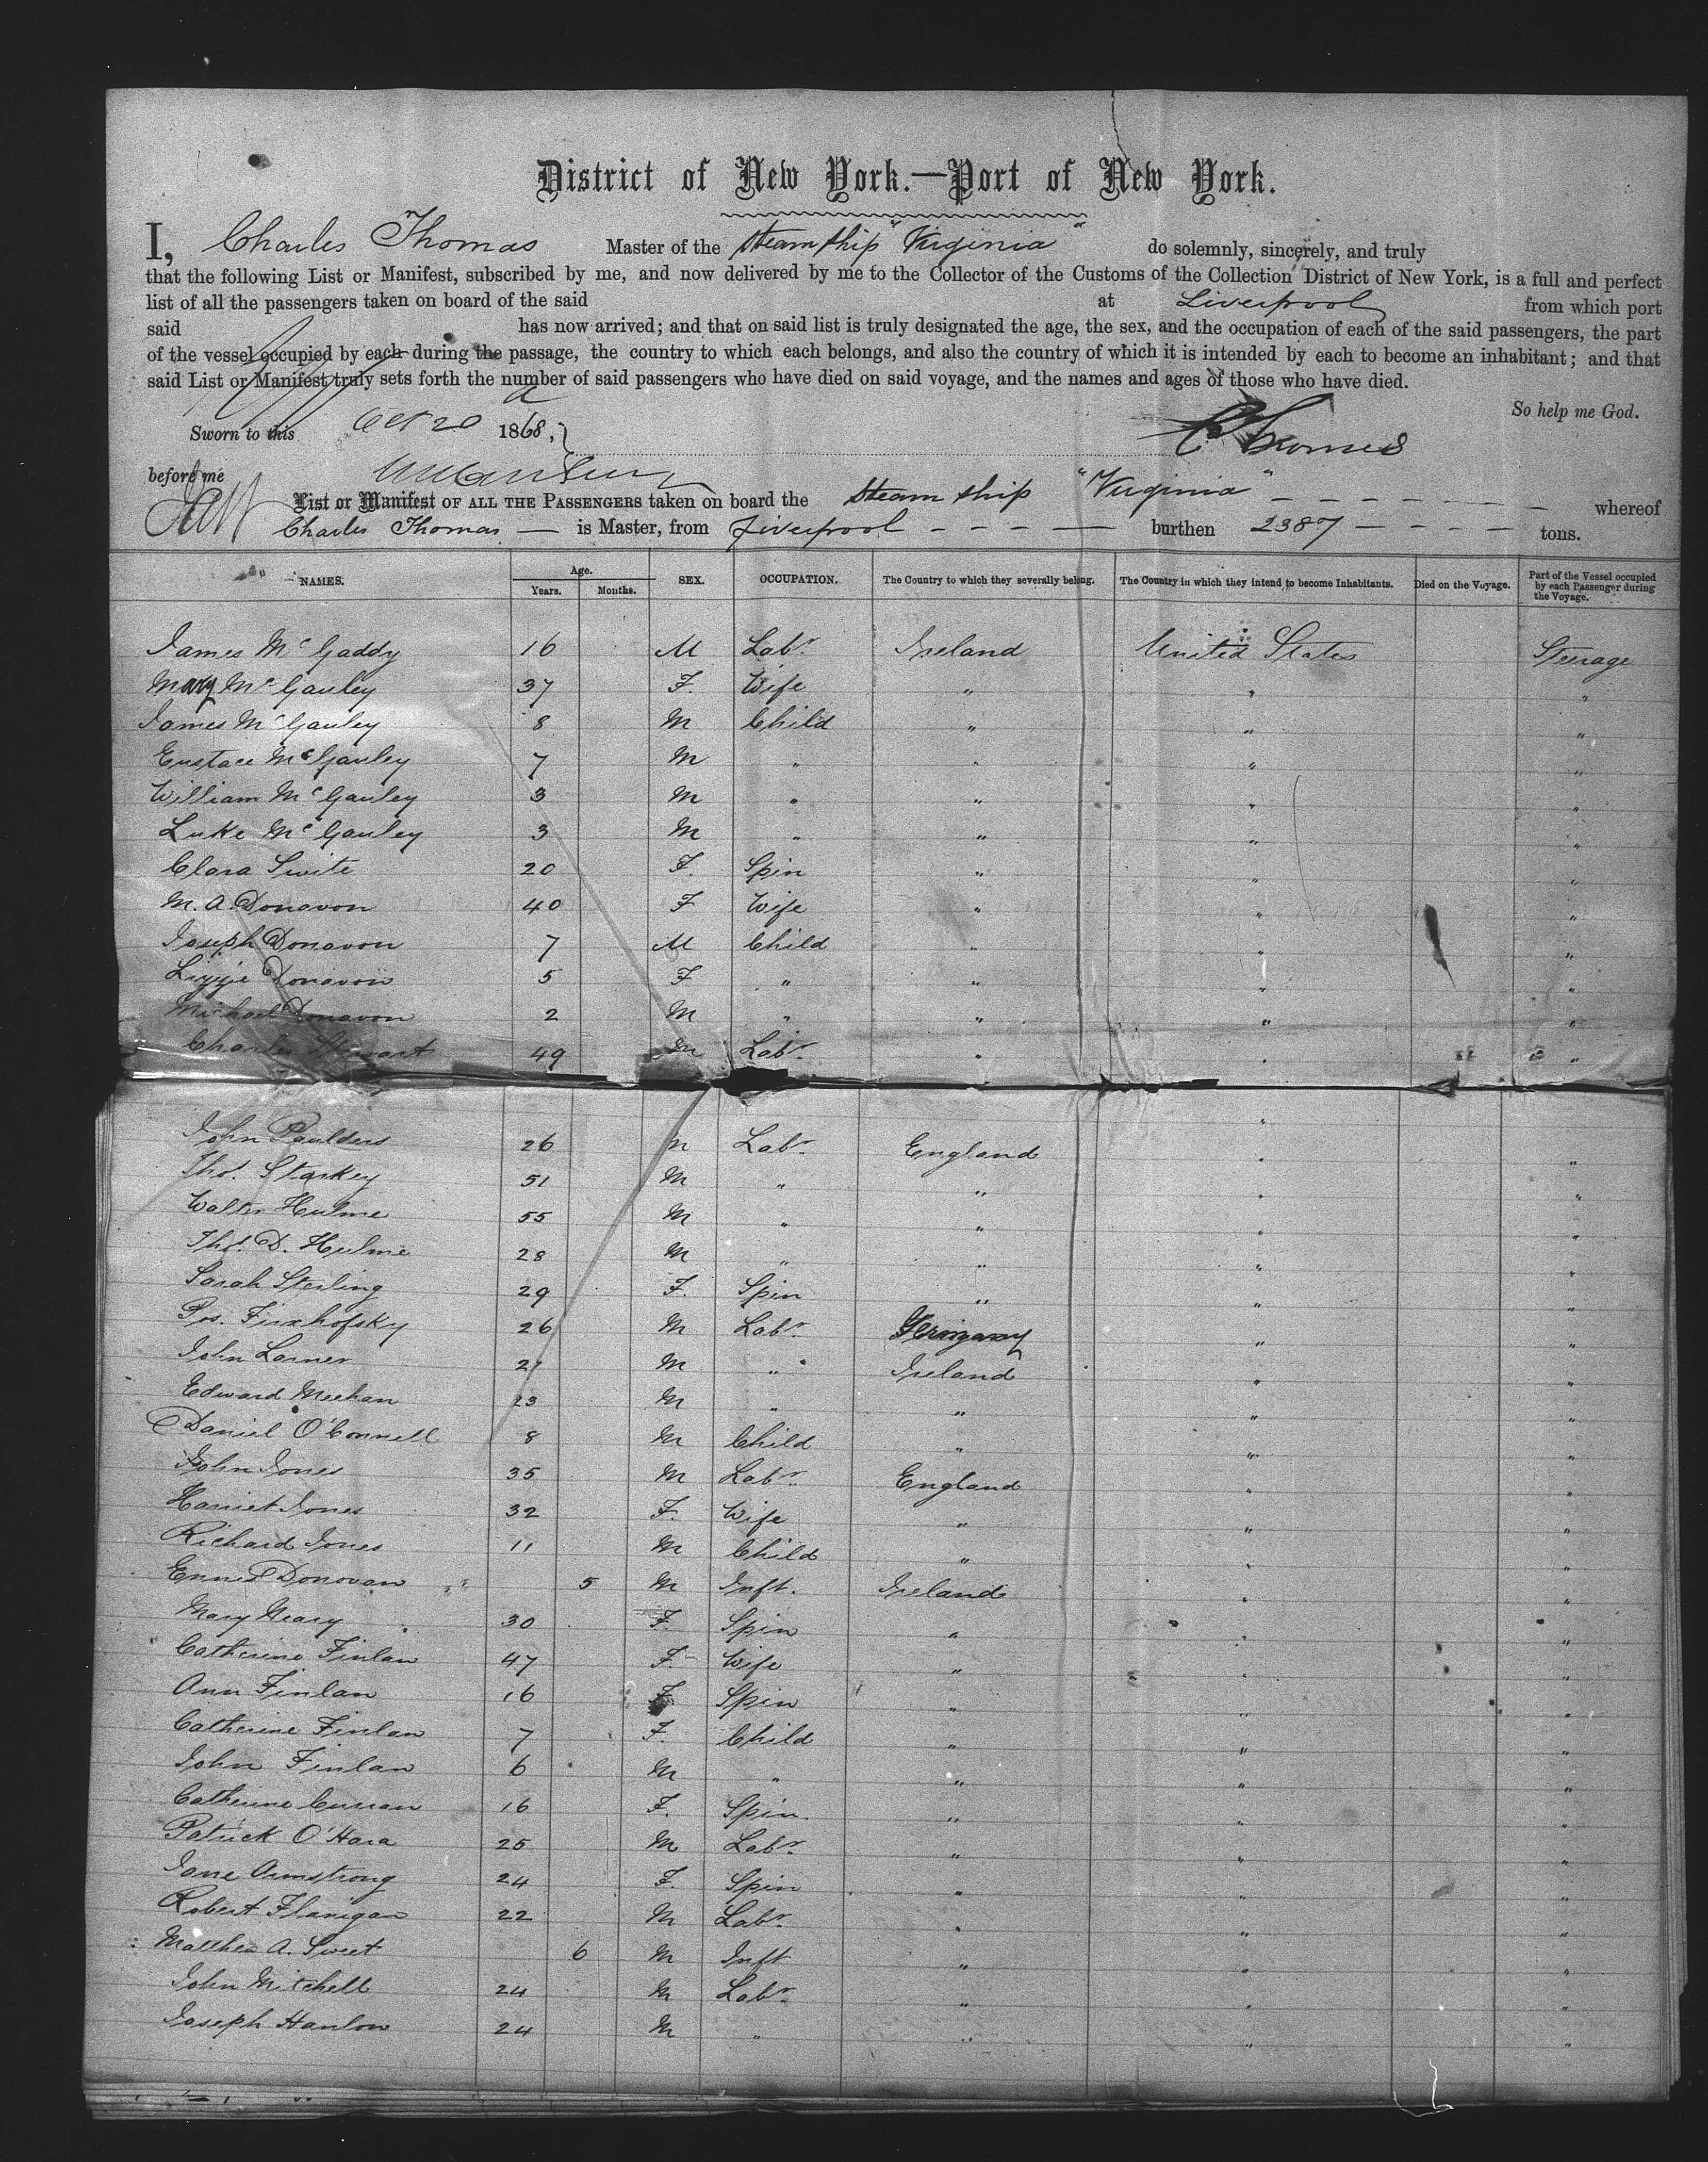 District of New York.—Port of New York.
I, Charles Thomas Master of the Steam Ship "Virginia" do solemnly, sincerely, and truly
that the following List or Manifest, subscribed by me, and now delivered by me to the Collector of the Customs of the Collection District of New York, is a full and perfect
list of all the passengers taken on board of the said at Liverpool from which port
said has now arrived; and that on said list is truly designated the age, the sex, and the occupation of each of the said passengers, the part
of the vessel occupied by each during the passage, the country to which each belongs, and also the country of which it is intended by each to become an inhabitant; and that
said List or Manifest truly sets forth the number of said passengers who have died on said voyage, and the names and ages of those who have died.
So help me God.
Sworn to this Oct 20 1868, C Thomas
before me
List or Manifest OF ALL THE PASSENGERS taken on board the Steam Ship "Virginia" whereof
Charles Thomas — is Master, from Liverpool - - - — burthen 2387 — - - - — tons.
NAMES. Age. Years. Months. SEX. OCCUPATION. The Country to which they severally belong. The Country in which they intend to become Inhabitants. Died on the Voyage. Part of the Vessel occupied by each Passenger during the Voyage.
James McGaddy 16 M Labr. Ireland United States Steerage
Mary McGauley 37 F. Wife " " "
James McGauley 8 M Child " " "
Eustace McGauley 7 M " " " "
William McGauley 3 M " " " "
Luke McGauley 3 M " " " "
Clara Swite 20 F. Spin " " "
M. A. Donavon 40 F Wife " " "
Joseph Donavon 7 M Child " " "
Lizzie Donavon 5 F " " " "
Michael Donavon 2 M " " " "
Charles Stewart 49 M Labr. " " "
John Paulders 26 M Labr. England " "
Thos. Starkey 51 M " " " "
Walter Hulme 55 M " " " "
Thos. D. Hulme 28 M " " " "
Sarah Sterling 29 F. Spin " " "
26 M Labr. Germany " "
John Larner 21 M " Ireland " "
Edward Meehan 23 M " " " "
Daniel O'Connell 8 M Child " " "
John Jones 35 M Labr. England " "
Harriet Jones 32 F. Wife " " "
Richard Jones 11 M Child " " "
Donovan 5 M Inft. Ireland " "
Mary Neary 30 F. Spin " " "
Catherine Finlan 47 F. Wife " " "
Ann Finlan 16 F Spin " " "
Catherine Finlan 7 F. Child " " "
John Finlan 6 M " " " "
Catherine Curran 16 F. Spin. " " "
Patrick O'Hara 25 M Labr. " " "
Jane Armstrong 24 F. Spin " " "
Robert Flanigan 22 M Labr. " " "
Matthew A. Sweet 6 M Inft " " "
John Mitchell 24 M Labr. " " "
Joseph Hanlon 24 M " " " "